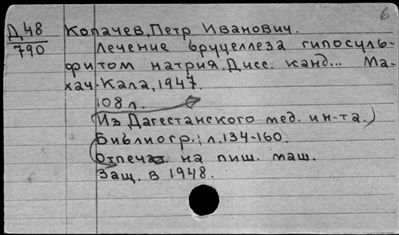 6
Д48
790
Копачев, Петр Иванович.
Лечение бруцеллеза гипосуль-
фитом натрия. Дисс. канд... Ма-
хач-Кала, 1947.
108 л.
(Из Дагестанского мед. ин-та.)
Библиогр.: л. 134-160.
Отпечат. на пиш. маш.
Защ. в 1948.